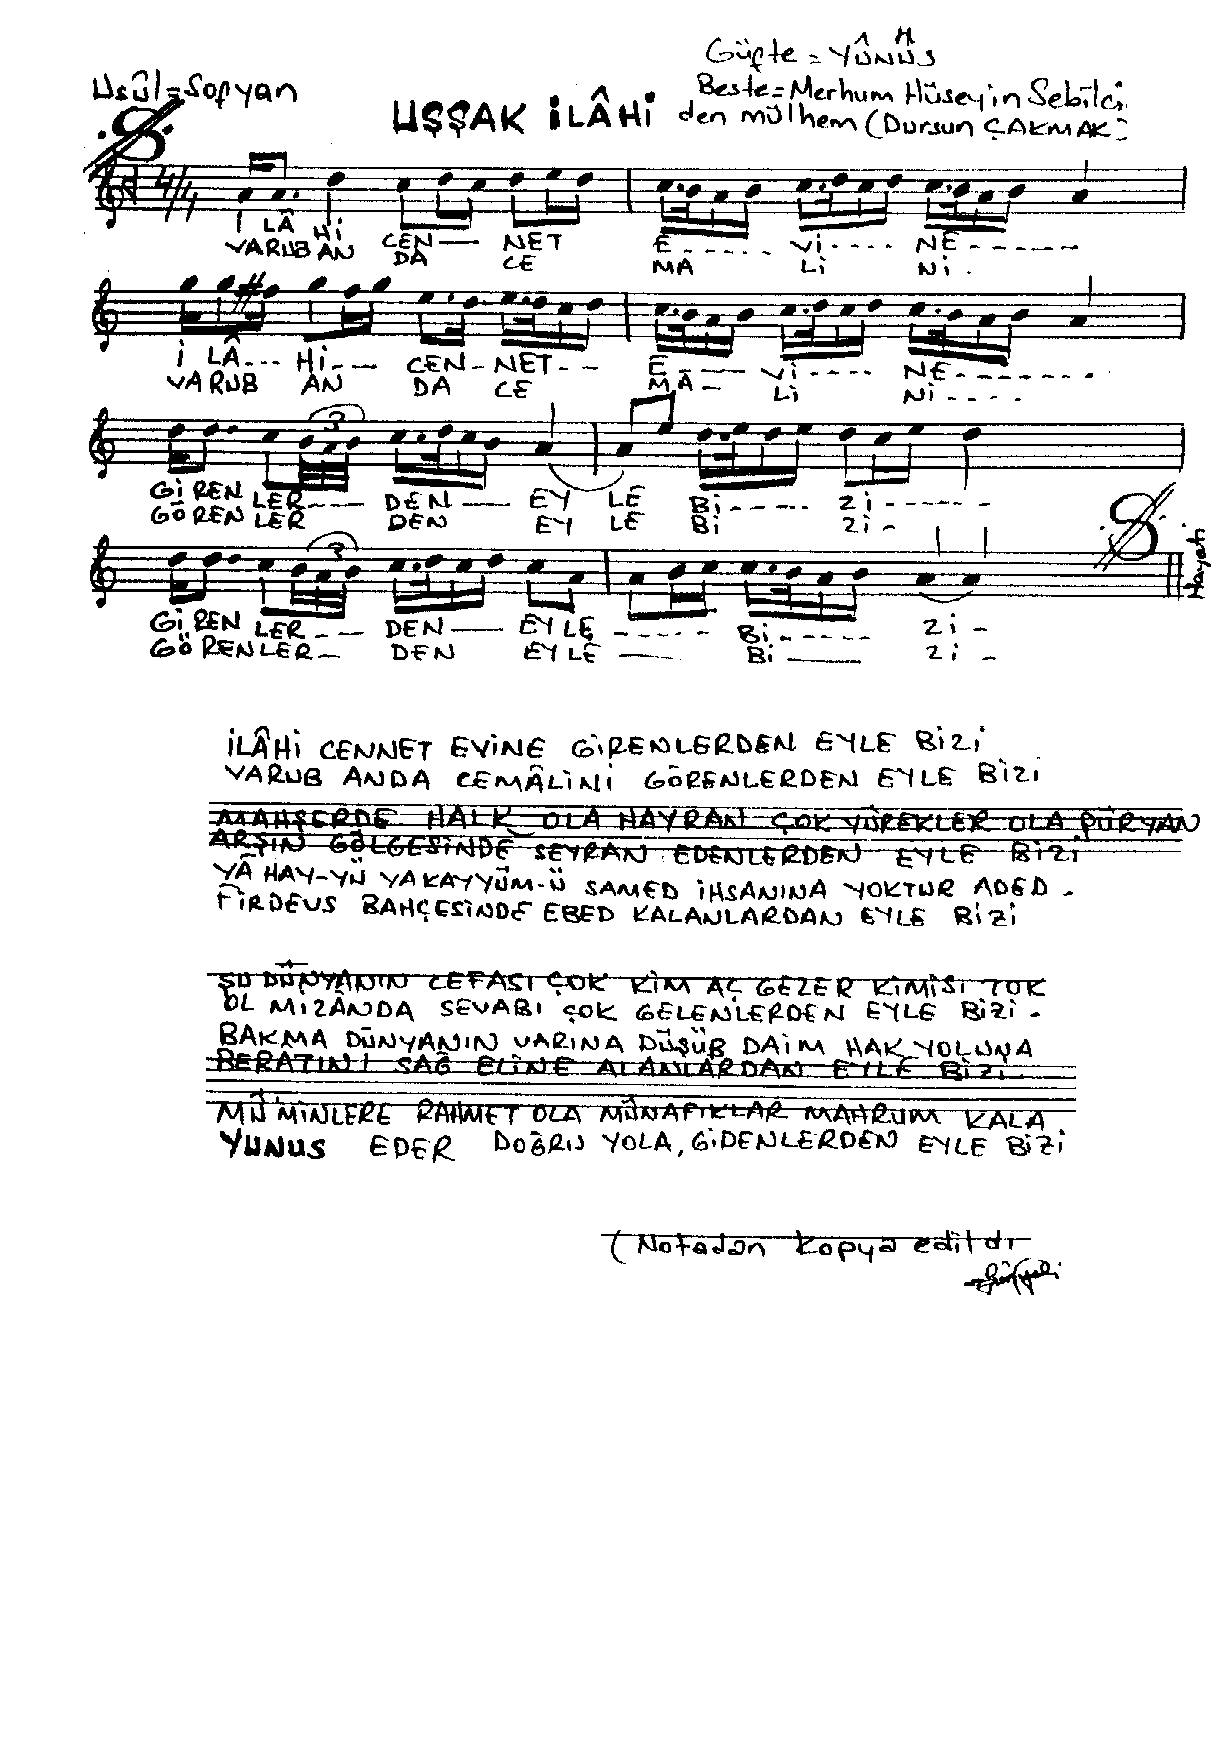 Güfte = YÛNUS
Usûl = Sofyan
Beste = Merhum Hüseyin Sebilci
UŞŞAK İLÂHİ den mülhem (Dursun ÇAKMAK)
4/4
İ LÂ Hİ CEN— NET E------ Vİ---- NE-------
VARUB AN DA CE MA Lİ Nİ.
İ LÂ--- Hİ--- CEN-NET--- E---- Vİ---- NE-------
VARUB AN DA CE MÂ— Lİ Nİ----
3
Gİ REN LER---- DEN— EY LE Bİ---- Zİ------
GÖREN LER DEN EY LE Bİ Zİ-
3
Gİ REN LER--- DEN— EYLE ----- Bİ----- Zİ -
GÖ RENLER— DEN EYLE — Bİ — Zİ -
Hayati
İLÂHİ CENNET EVİNE GİRENLERDEN EYLE BİZİ
VARUB ANDA CEMÂLİNİ GÖRENLERDEN EYLE BİZİ
MAHŞERDE HALK OLA HAYRAN ÇOK YÜREKLER OLA PÜRYAN
ARŞIN GÖLGESİNDE SEYRAN EDENLERDEN EYLE BİZİ
YÂ HAY-YÜ YA KAYYÜM-Ü SAMED İHSANINA YOKTUR ADED -
FİRDEVS BAHÇESİNDE EBED KALANLARDAN EYLE BİZİ
ŞU DÜNYÂNIN CEFASI ÇOK KİM AÇ GEZER KİMİSİ TOK
OL MİZÂNDA SEVABI ÇOK GELENLERDEN EYLE BİZİ -
BAKMA DÜNYANIN VARINA DÜŞÜB DAİM HAK YOLUNA
BERATINI SAĞ ELİNE ALANLARDAN EYLE BİZİ
MÜ'MİNLERE RAHMET OLA MÜNAFIKLAR MAHRUM KALA
YUNUS EDER DOĞRU YOLA, GİDENLERDEN EYLE BİZİ
(Notadan kopya edildi